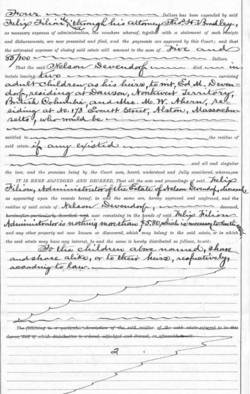 Four Dollars has been expended by said
Felix Filion, through his attorney Theo H. Bradley,
as necessary expenses of administration, the vouchers whereof, together with a statement of such Receipts
and disbursements, are now presented and filed, and the payments are approved by this Court; and that
the estimated expense of closing said estate will amount to the sum of Five and
50/100 Dollars.
That the said Nelson Devendorf died
leaving two
adult children, as his heirs, to wit, Ed. M. Deven-
dorf, residing at Dawson, Northwest Territory,
British Columbia, and Mrs. M. W. Ahern, re-
siding at No. 173 Everett Street, Alston, Massachu-
setts, who would be
entitled to the residue
of said estate, if any existed
and all and singular
the law, and the premises being by the Court now here seen, heard, understood and fully considered
IT IS HEREBY ADJUDGED AND DECREED, That all the acts and proceedings of said Felix
Filion, Administrator of the Estate of Nelson Devendorf, deceased,
as appearing upon the records hereof, be and the same are hereby approved and confirmed, and the
residue of said estate of Nelson Devendorf, deceased,
now remaining in the hands of said Felix Filion
Administrator is nothing more than
and any other property not now known or discovered, which may belong to the said estate, or in which
the said estate may have any interest, be and the same is hereby distributed as follows, to wit:
To the children above named, share
and share alike, or to their heirs, respectively,
according to law.
The following is a particular description of the said residue of the said estate referred to in this
decree, and of which distribution is ordered, adjudged and decreed, as aforesaid
2